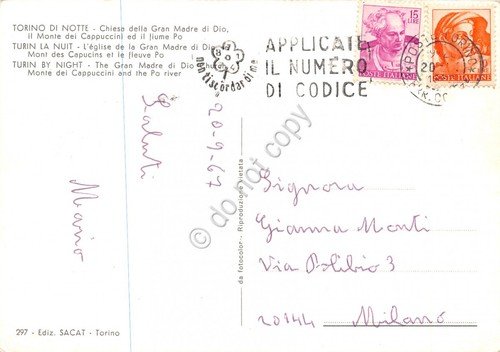 TORINO DI NOTTE - Chiesa della Gran Madre di Dio,
il Monte dei Cappuccini ed il fiume Po
TURIN LA NUIT - L'église de la Gran Madre di Dio,
Mont des Capucins et le fleuve Po
TURIN BY NIGHT - The Gran Madre di Dio Church
Monte dei Cappuccini and the Po river
non ti scordar di me
APPLICATE
IL NUMERO
DI CODICE
15
POSTE ITALIANE
POSTE ITALIANE
20
Saluti
20-9-67
Mario
297 - Ediz. SACAT - Torino
da fotocolor - Riproduzione vietata
Signora
Gianna Monti
Via Polibio 3
20144 Milano
do not copy